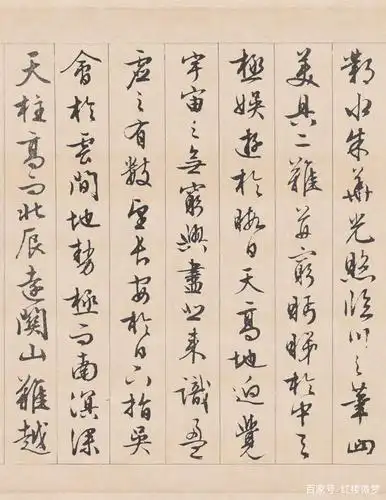 鄴水朱華光照臨川之筆四
美具二難并窮眄睇於中天
極娛遊於暇日天高地迥覺
宇宙之無窮興盡悲來識盈
虛之有數望長安於日下指吳
會於雲間地勢極而南溟深
天柱高而北辰遠關山難越
百家号/红楼微梦